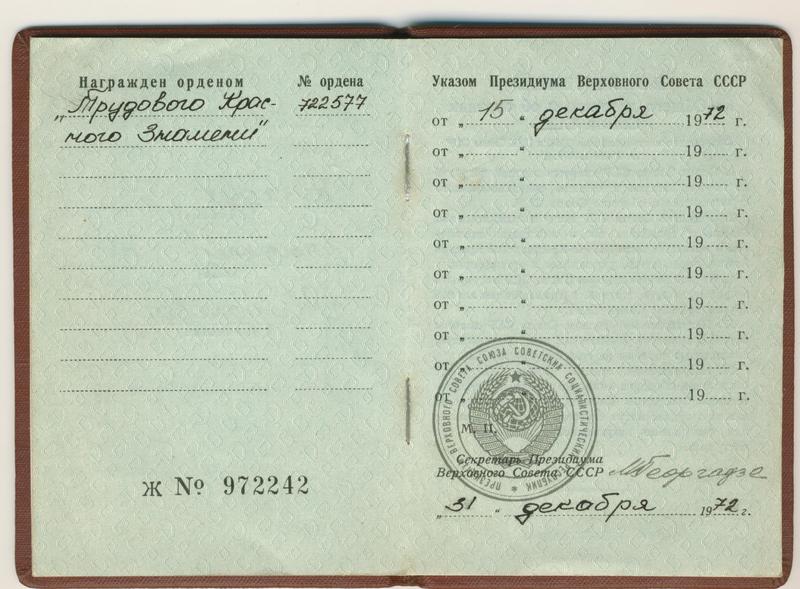 Награжден орденом № ордена
„Трудового Крас- 722577
ного Знамени“
Ж № 972242
Указом Президиума Верховного Совета СССР
от „ 15 “ декабря 1972 г.
от „ “ 19 г.
от „ “ 19 г.
от „ “ 19 г.
от „ “ 19 г.
от „ “ 19 г.
от „ “ 19 г.
от „ “ 19 г.
от „ “ 19 г.
от „ “ 19 г.
ПРЕЗИДИУМ ВЕРХОВНОГО СОВЕТА СОЮЗА СОВЕТСКИХ СОЦИАЛИСТИЧЕСКИХ РЕСПУБЛИК
М. П.
Секретарь Президиума
Верховного Совета СССР МГеоргадзе
„ 31 “ декабря 1972 г.